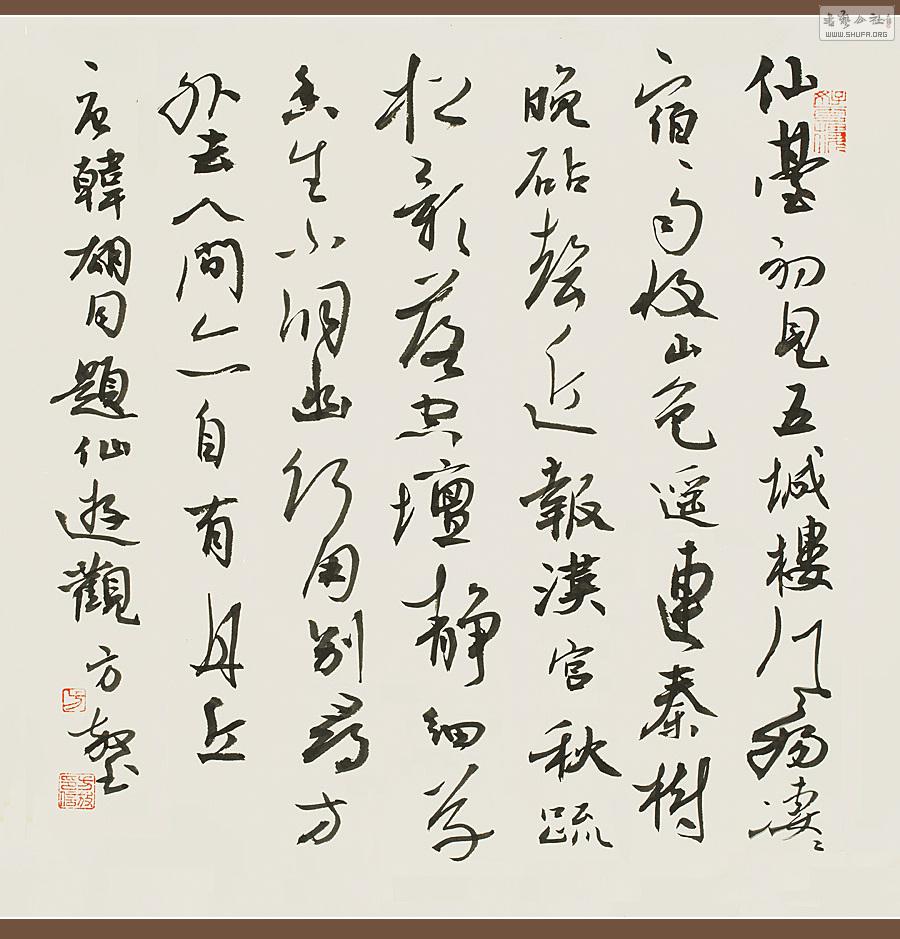 仙臺初見五城樓風物凄〻
宿雨收山色遥連秦樹
晚砧聲近報漢宮秋疏
松影落空壇靜細草
香生小洞幽何用别尋方
外去人間亦自有丹丘
唐韓翃同題仙遊觀 方
書藝公社
WWW.SHUFA.ORG